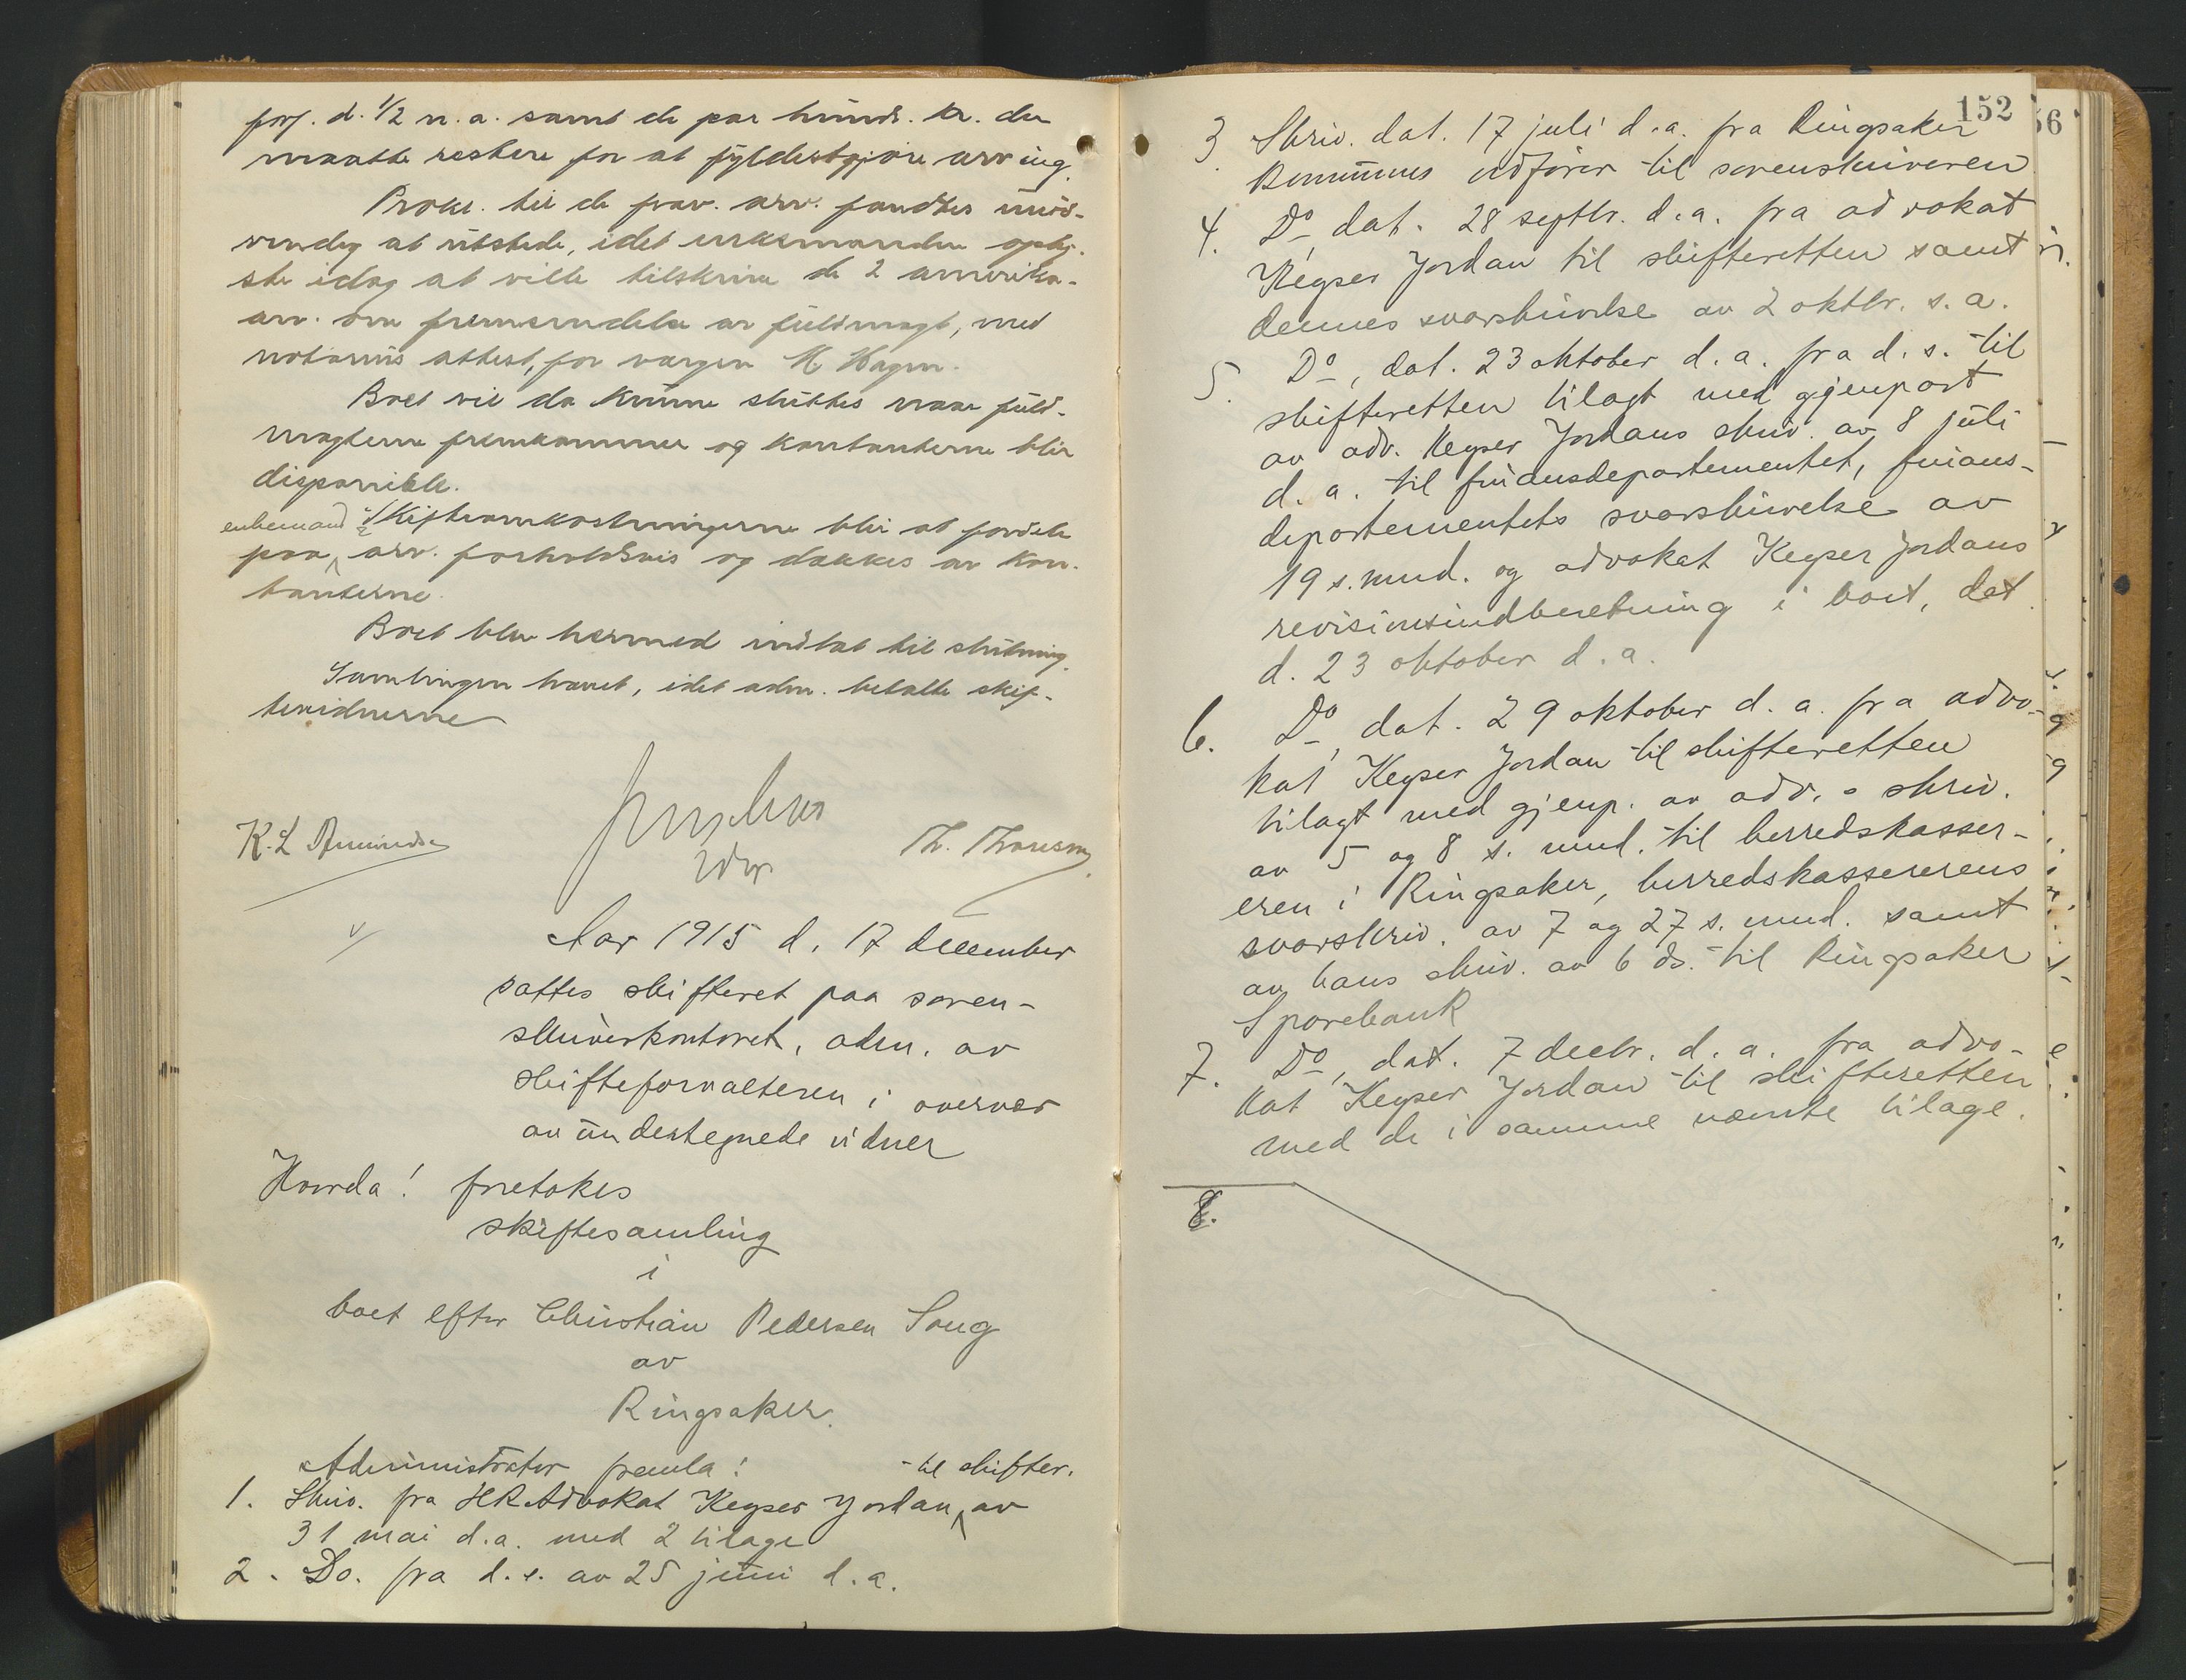 forf. d. 1/2 n. a. samt de par hundr. kr. der
maatte restere for at fyldestgjøre arving.
Prokl. til de frav. arv. fandtes unød-
vendig at utstede, idet enkemanden oply-
ste idag at ville tilskrive de 2 amerika-
arv. om fremsendelse av fuldmagt, med
notarius attest, for vergen K. Hagen.
Boet vil da kunne sluttes naar fuld-
magterne fremkommer og kontanterne blir
disponible.
enkemand & Skifteomkostningerne blir at fordele
paa arv. forholdsvis og dækkes av kon-
tanterne.
Boet blev hermed indtat til slutning.
Samlingen hævet, idet adm. betalte skif-
tevidnerne
K. L. Amundsen
Th. Thoresen
Aar 1915 d. 17 december
sattes skifteret paa soren-
skriverkontoret, adm. av
skifteforvalteren i overvær
av undertegnede vidner
Hvorda! foretokes
skiftesamling
i
boet efter Christian Pedersen Saug
av
Ringsaker.
Administrator fremla:
- til skifter.
1. Skriv. fra HR Advokat Keyser Jordan av
31 mai d.a. med 2 bilage
2. Do. fra d. s. av 25 juni d. a.
152
56
3 Skriv. dat. 17 juli d.a. fra Ringsaker
kommunes ordfører til sorenskriveren
4. Do, dat. 28 septbr. d.a. fra advokat
Keyser Jordan til skifteretten samt
dennes svarskrivelse av 2 oktbr. s. a.
5. Do, dat. 23 oktober d. a. fra d. s. til
skifteretten bilagt med gjenpart
av adv. Keyser Jordans skriv. av 8 juli
d. a. til finansdepartementet, finans-
departementets svarskrivelse av
19 s. mnd. og advokat Keyser Jordans
revisionsindberetning i boet, dat.
d. 23 oktober d. a.
6. Do, dat. 29 oktober d. a. fra advo-
kat Keyser Jordan til skifteretten
bilagt med gjenp. av adv. s skriv.
av 5 og 8 s. mnd. til herredskasser-
eren i Ringsaker, herredskassererens
svarskriv. av 7 og 27 s. mnd. samt
av hans skriv. av 6 ds. til Ringsaker
Sparebank
7. Do, dat. 7 decbr. d. a. fra advo-
kat Keyser Jordan til skifteretten
med de i samme nævnte bilage.
8.